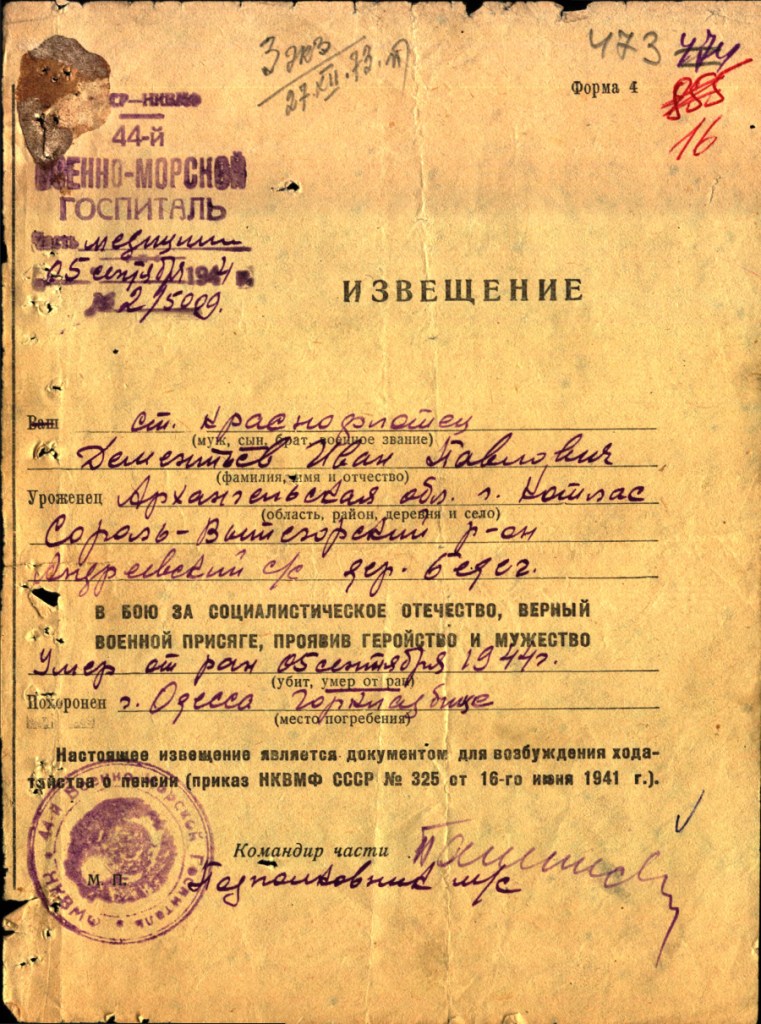 3 экз
27.XII.73.
473 474
Форма 4
885
16
СР—НКВМФ
44-й
ВОЕННО-МОРСКОЙ
ГОСПИТАЛЬ
Часть медицин
05 сентября 1944 г.
№ 2/5009.
ИЗВЕЩЕНИЕ
Ваш ст. Краснофлотец
(муж, сын, брат, военное звание)
Дементьев Иван Павлович
(фамилия, имя и отчество)
Уроженец Архангельская обл. г. Котлас
(область, район, деревня и село)
Сороль-Вытегорский р-он
Андреевский с/с дер. Бедег.
В БОЮ ЗА СОЦИАЛИСТИЧЕСКОЕ ОТЕЧЕСТВО, ВЕРНЫЙ
ВОЕННОЙ ПРИСЯГЕ, ПРОЯВИВ ГЕРОЙСТВО И МУЖЕСТВО
Умер от ран 05 сентября 1944г.
(убит, умер от ран)
Похоронен г. Одесса Горкладбище
(место погребения)
Настоящее извещение является документом для возбуждения хода-
тайства о пенсии (приказ НКВМФ СССР № 325 от 16-го июня 1941 г.).
Командир части
М. П. Подполковник м/с
44-й Военно-Морской Госпиталь НКВМФ